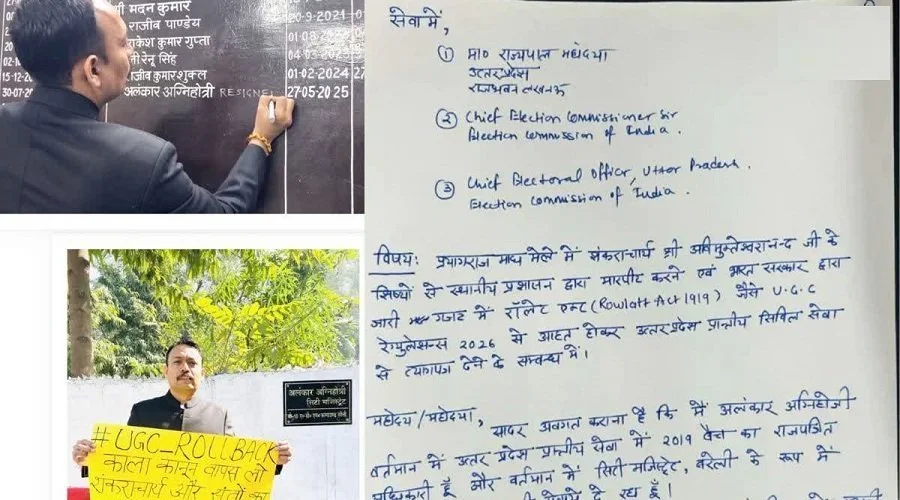 श्री मदन कुमार
राजीव पाण्डेय 20-9-2021
राकेश कुमार गुप्ता
रेनू सिंह
15-12- राजीव कुमार शुक्ल 01-02-2024
30-07- अलंकार अग्निहोत्री RESIGNE 27-05-2025
अलंकार अग्निहोत्री
सिटी मजिस्ट्रेट
#UGC_ROLLBACK
काला कानून वापस लो
शंकराचार्य और संतों का
सेवा में,
① मा० राज्यपाल महोदया
उत्तर प्रदेश
राजभवन लखनऊ
② Chief Election Commissioner Sir
Election Commission of India.
③ Chief Electoral Officer, Uttar Pradesh.
Election Commission of India.
विषय: प्रयागराज माघ मेले में शंकराचार्य श्री अविमुक्तेश्वरानन्द जी के
शिष्यों से स्थानीय प्रशासन द्वारा मारपीट करने एवं भारत सरकार द्वारा
जारी गजट में रॉलेट एक्ट (Rowlatt Act 1919) जैसे U.G.C
रेगुलेसन्स 2026 से आहत होकर उत्तर प्रदेश प्रान्तीय सिविल सेवा
से त्यागपत्र देने के सम्बन्ध में।
महोदय/महोदया,
सादर अवगत कराना है कि मैं अलंकार अग्निहोत्री
वर्तमान में उत्तर प्रदेश प्रान्तीय सेवा में 2019 बैच का राजपत्रित
अधिकारी हूँ और वर्तमान में सिटी मजिस्ट्रेट, बरेली के रूप में
दे रहा हूँ।